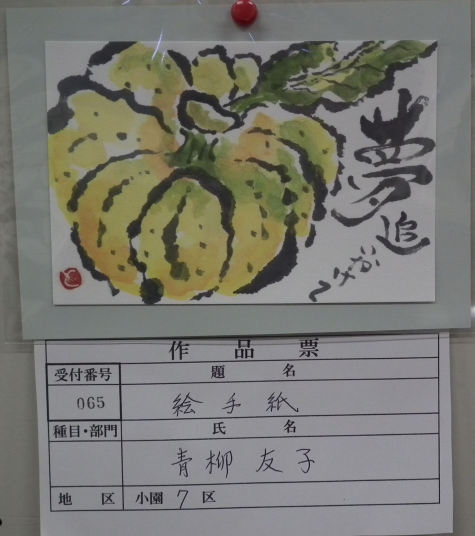 夢
追
作品票
受付番号 題名
065 絵手紙
種目・部門 氏名
青柳友子
地区 小園7区